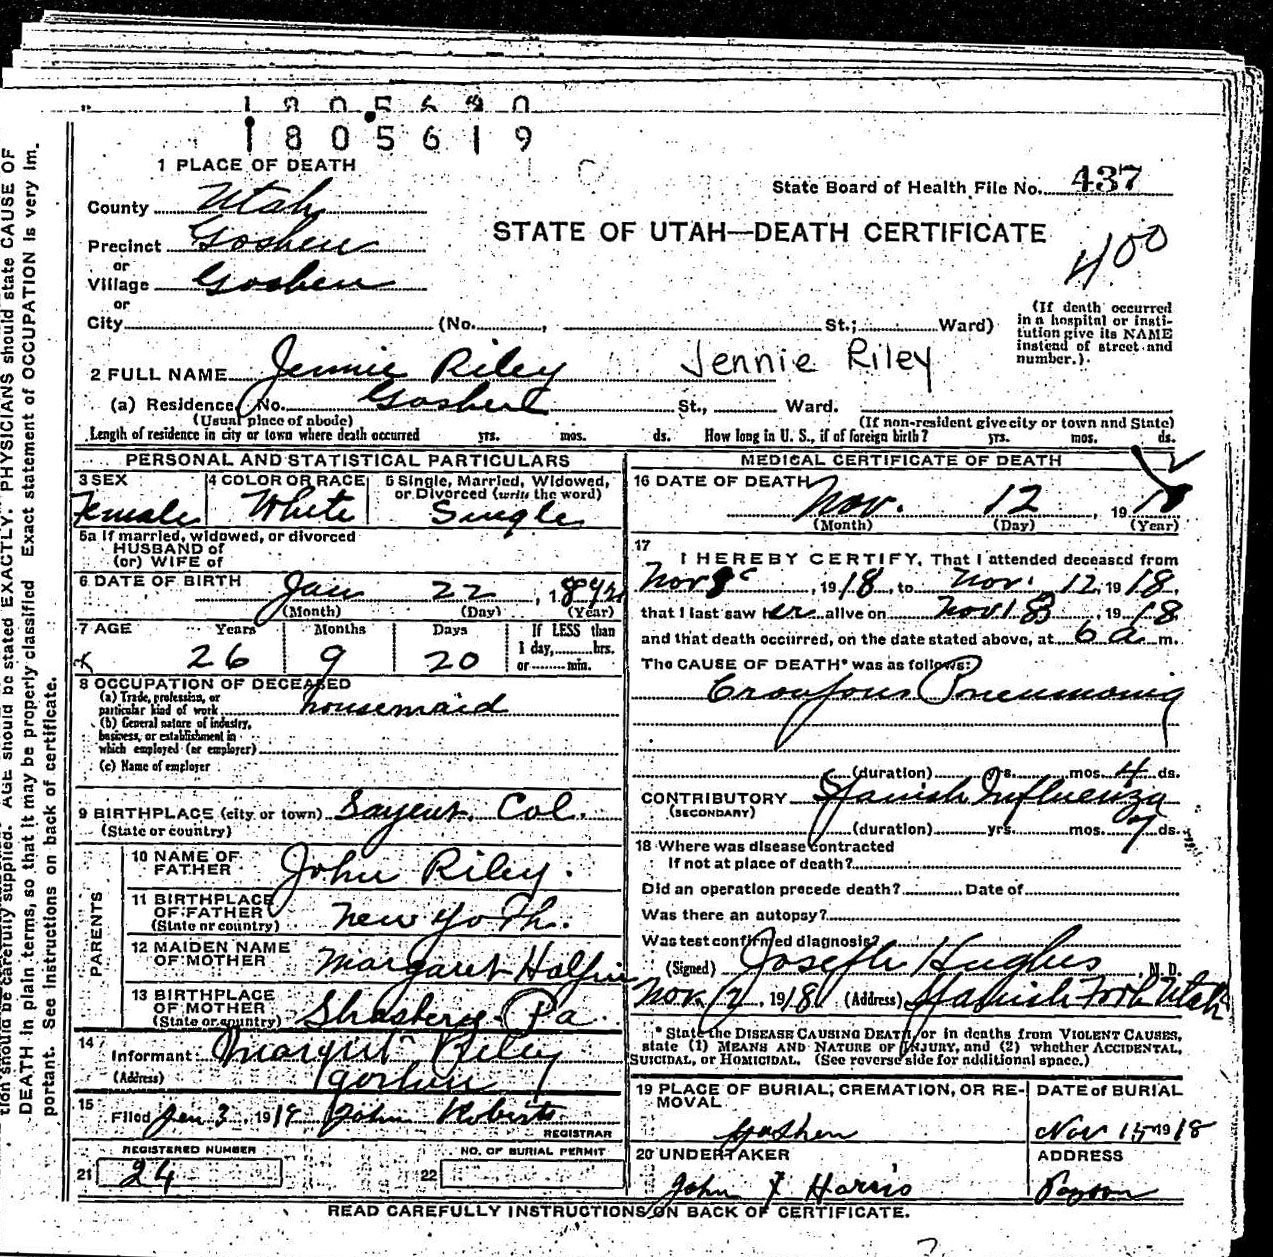 1805619
1 PLACE OF DEATH
State Board of Health File No. 437
County Utah
STATE OF UTAH—DEATH CERTIFICATE
400
Precinct Goshen
or
Village Goshen
or
City (No. , St.; Ward)
(If death occurred in a hospital or insti-tution give its NAME instead of street and number.)
2 FULL NAME Jennie Riley Jennie Riley
(a) Residence No. Goshen St., Ward.
(Usual place of abode) (If non-resident give city or town and State)
Length of residence in city or town where death occurred yrs. mos. ds. How long in U. S., if of foreign birth? yrs. mos. ds.
PERSONAL AND STATISTICAL PARTICULARS
3 SEX
Female
4 COLOR OR RACE
White
5 Single, Married, Widowed, or Divorced (write the word)
Single
5a If married, widowed, or divorced
HUSBAND of
(or) WIFE of
6 DATE OF BIRTH Jan 22, 1892
(Month) (Day) (Year)
7 AGE Years Months Days If LESS than
1 day, hrs.
26 9 20 or min.
8 OCCUPATION OF DECEASED
(a) Trade, profession, or particular kind of work housemaid
(b) General nature of industry, business, or establishment in which employed (or employer)
(c) Name of employer
9 BIRTHPLACE (city or town) Col.
(State or country)
PARENTS
10 NAME OF FATHER John Riley.
11 BIRTHPLACE OF FATHER New York.
(State or country)
12 MAIDEN NAME OF MOTHER Margaret
13 BIRTHPLACE OF MOTHER Pa.
(State or country)
14 Informant: Margret Riley
(Address) Goshen
15 Filed Jan 3, 1919 John Roberts
REGISTRAR
REGISTERED NUMBER NO. OF BURIAL PERMIT
21 24 22
MEDICAL CERTIFICATE OF DEATH
16 DATE OF DEATH Nov. 12, 1918
(Month) (Day) (Year)
17
I HEREBY CERTIFY, That I attended deceased from
Nov , 1918, to Nov. 12, 1918,
that I last saw her alive on Nov , 1918
and that death occurred, on the date stated above, at 6 a m.
The CAUSE OF DEATH* was as follows:
Croupous Pneumonia
(duration) yrs. mos. 4 ds.
CONTRIBUTORY Spanish Influenza
(SECONDARY)
(duration) yrs. mos. 7 ds.
18 Where was disease contracted
If not at place of death?
Did an operation precede death? Date of
Was there an autopsy?
Was test confirmed diagnosis?
(Signed) Joseph Hughes, M. D.
Nov. 12, 1918 (Address) Spanish Fork Utah
* State the DISEASE CAUSING DEATH, or in deaths from VIOLENT CAUSES,
state (1) MEANS AND NATURE OF INJURY, and (2) whether ACCIDENTAL,
SUICIDAL, or HOMICIDAL. (See reverse side for additional space.)
19 PLACE OF BURIAL, CREMATION, OR RE-MOVAL
Goshen
DATE of BURIAL
Nov 15 1918
20 UNDERTAKER
John F Harris
ADDRESS
Payson
READ CAREFULLY INSTRUCTIONS ON BACK OF CERTIFICATE.
tion should be carefully supplied. AGE should be stated EXACTLY. PHYSICIANS should state CAUSE OF
DEATH in plain terms, so that it may be properly classified Exact statement of OCCUPATION is very im-
portant. See instructions on back of certificate.